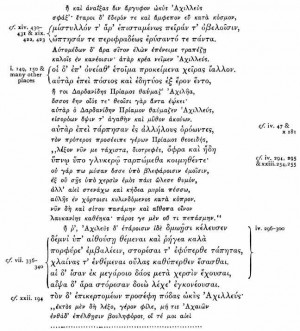 ἦ καὶ ἀναΐξας ὄϊν ἄργυφον ὠκὺς Ἀχιλλεὺς
σφάξ'· ἕταροι δ' ἔδερόν τε καὶ ἄμφεπον εὖ κατὰ κόσμον,
cf. xiv. 430-
431 & xix.
422, 423
μίστυλλόν τ' ἄρ' ἐπισταμένως πεῖράν τ' ὀβελοῖσιν,
ὤπτησάν τε περιφραδέως ἐρύσαντό τε πάντα.
Αὐτομέδων δ' ἄρα σῖτον ἑλὼν ἐπένειμε τραπέζῃ
καλοῖς ἐν κανέοισιν· ἀτὰρ κρέα νεῖμεν Ἀχιλλεύς.
i. 149, 150 &
many other
places
οἱ δ' ἐπ' ὀνείαθ' ἑτοῖμα προκείμενα χεῖρας ἴαλλον.
αὐτὰρ ἐπεὶ πόσιος καὶ ἐδητύος ἐξ ἔρον ἕντο,
ἦ τοι Δαρδανίδης Πρίαμος θαύμαζ' Ἀχιλῆα,
ὅσσος ἔην οἷός τε· θεοῖσι γὰρ ἄντα ἐῴκει·
αὐτὰρ ὁ Δαρδανίδην Πρίαμον θαύμαζεν Ἀχιλλεύς,
εἰσορόων ὄψιν τ' ἀγαθὴν καὶ μῦθον ἀκούων.
αὐτὰρ ἐπεὶ τάρπησαν ἐς ἀλλήλους ὁρόωντες,
τὸν πρότερος προσέειπε γέρων Πρίαμος θεοειδής,
cf. iv. 47 &
x. 181
„λέξον νῦν με τάχιστα, διοτρεφές, ὄφρα καὶ ἤδη
cf. iv. 294, 295
& xxiii. 254, 255
ὕπνῳ ὕπο γλυκερῷ ταρπώμεθα κοιμηθέντε·
οὐ γάρ πω μύσαν ὄσσε ὑπὸ βλεφάροισιν ἐμοῖσιν,
ἐξ οὗ σῇς ὑπὸ χερσὶν ἐμὸς πάϊς ὤλεσε θυμόν,
ἀλλ' αἰεὶ στενάχω καὶ κήδεα μυρία πέσσω,
αὐλῆς ἐν χόρτοισι κυλινδόμενος κατὰ κόπρον.
νῦν δὴ καὶ σίτου πασάμην καὶ αἴθοπα οἶνον
λαυκανίης καθέηκα· πάρος γε μὲν οὔ τι πεπάσμην.“
iv. 296-300
ἦ ῥ', Ἀχιλεὺς δ' ἑτάροισιν ἰδὲ δμῳῇσι κέλευσεν
cf. vii. 336-
340
δέμνι' ὑπ' αἰθούσῃ θέμεναι καὶ ῥήγεα καλὰ
πορφύρε' ἐμβαλέειν, στορέσαι τ' ἐφύπερθε τάπητας,
χλαίνας τ' ἐνθέμεναι οὔλας καθύπερθεν ἕσασθαι.
αἱ δ' ἴσαν ἐκ μεγάροιο δάος μετὰ χερσὶν ἔχουσαι,
αἶψα δ' ἄρα στόρεσαν δοιὼ λέχε' ἐγκονέουσαι.
cf. xxii. 194
τὸν δ' ἐπικερτομέων προσέφη πόδας ὠκὺς Ἀχιλλεύς·
„ἐκτὸς μὲν δὴ λέξο, γέρον φίλε, μή τις Ἀχαιῶν
ἐνθάδ' ἐπέλθῃσιν βουληφόρος, οἵ τέ μοι αἰεὶ